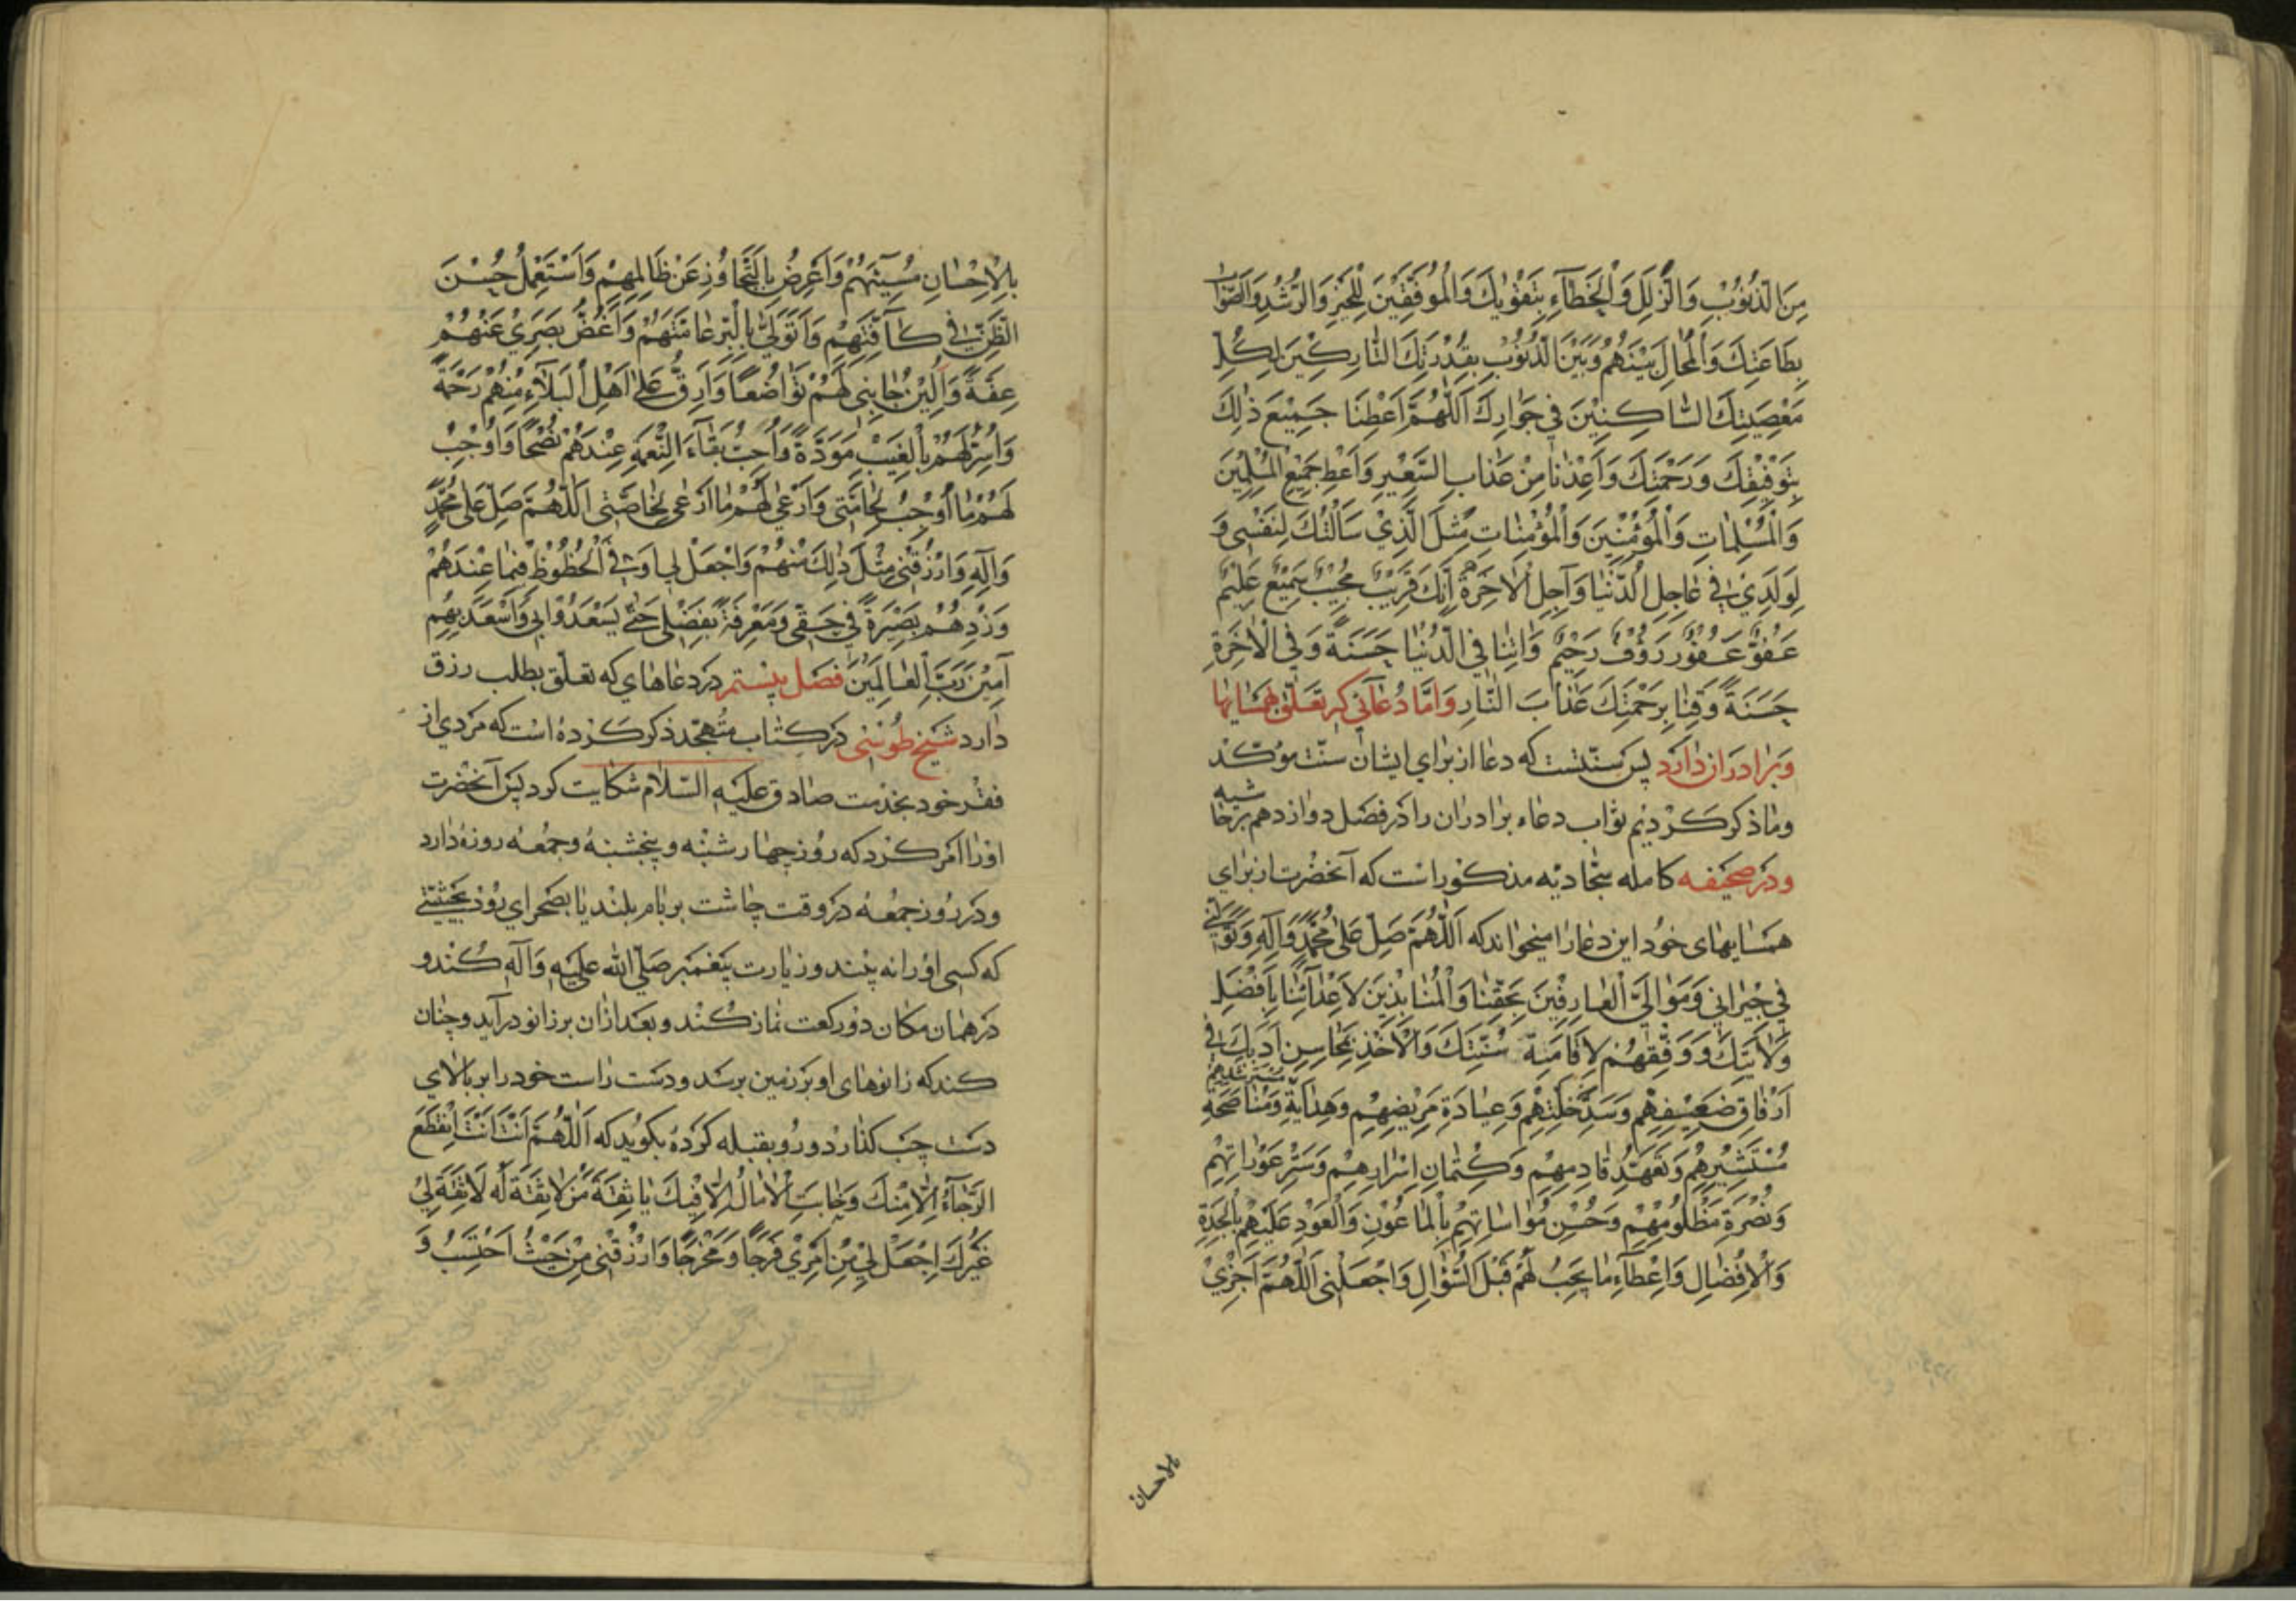 مِنَ الذُّنُوبِ وَالزَّلَلِ وَالْخَطَآءِ بِتَقْوٰيكَ وَالْمُوَفَّقِيْنَ لِلْخَيْرِ وَالرُّشْدِ وَالصَّوَابِ
بِطَاعَتِكَ وَالْمُحَالِ بَيْنَهُمْ وَبَيْنَ الذُّنُوْبِ بِقُدْرَتِكَ التَّارِكِيْنَ لِكُلِّ
مَعْصِيَتِكَ السَّاكِنِيْنَ فِي جَوَارِكَ اَللّٰهُمَّ اَعْطِنَا جَمِيْعَ ذٰلِكَ
بِتَوْفِيْقِكَ وَرَحْمَتِكَ وَاَعِذْنَا مِنْ عَذَابِ السَّعِيْرِ وَاَعْطِ جَمِيْعَ الْمُسْلِمِيْنَ
وَالْمُسْلِمَاتِ وَالْمُؤْمِنِيْنَ وَالْمُؤْمِنَاتِ مِثْلَ الَّذِيْ سَاَلْتُكَ لِنَفْسِيْ وَ
لِوَلَدِيْ فِي عَاجِلِ الدُّنْيَا وَآجِلِ الْاٰخِرَةِ اِنَّكَ قَرِيْبٌ مُجِيْبٌ سَمِيْعٌ عَلِيْمٌ
عَفُوٌّ غَفُوْرٌ رَؤُفٌ رَحِيْمٌ وَاٰتِنَا فِي الدُّنْيَا حَسَنَةً وَفِي الْاٰخِرَةِ
حَسَنَةً وَقِنَا بِرَحْمَتِكَ عَذَابَ النَّارِ وَامَّا دُعَائی که تعلّق بهمسایها
وبرادران دارد پس سنّتست که دعا از برای ایشان سنّت موکّد
وما ذکر کردیم ثواب دعاء برادران را در فصل دوازدهم برخا
شیه
ودر صحیفه کامله سجّادیّه مذکور است که آنحضرت از برای
همسایهای خود این دعا را میخواند که اَللّٰهُمَّ صَلِّ عَلٰى مُحَمَّدٍ وَآلِهِ وَتَوَلَّنِي
فِي جِيْرَانِي وَمَوَالِيَّ الْعَارِفِيْنَ بِحَقِّنَا وَالْمُنَابِذِيْنَ لِاَعْدَآئِنَا بِاَفْضَلِ
وَلَايَتِكَ وَوَفِّقْهُمْ لِاِقَامَةِ سُنَّتِكَ وَالْاَخْذِ بِمَحَاسِنِ اَدَبِكَ فِي
مُسْتَرْشِدِهِمْ
اِرْفَاقِ ضَعِيْفِهِمْ وَسَدِّ خَلَّتِهِمْ وَعِيَادَةِ مَرِيْضِهِمْ وَهِدَايَةِ وَمُنَاصَحَةِ
مُسْتَشِيْرِهِمْ وَتَعَهُّدِ قَادِمِهِمْ وَكِتْمَانِ اَسْرَارِهِمْ وَسَتْرِ عَوْرَاتِهِمْ
وَنُصْرَةِ مَظْلُوْمِهِمْ وَحُسْنِ مُوَاسَاتِهِمْ بِالْمَاعُوْنِ وَالْعَوْدِ عَلَيْهِمْ بِالْجِدَةِ
وَالْاِفْضَالِ وَاِعْطَآءِ مَا يَجِبُ لَهُمْ قَبْلَ السُّؤَالِ وَاجْعَلْنِي اَللّٰهُمَّ اَجْزِيْ
بالاحسان
بِالْاِحْسَانِ مُسِيْئَهُمْ وَاُعْرِضُ بِالتَّجَاوُزِ عَنْ ظَالِمِهِمْ وَاَسْتَعْمِلُ حُسْنَ
الظَّنِّ فِي كَآفَّتِهِمْ وَاَتَوَلَّى بِالْبِرِّ عَامَّتَهُمْ وَاَغُضُّ بَصَرِيْ عَنْهُمْ
عِفَّةً وَاُلِيْنُ جَانِبِي لَهُمْ تَوَاضُعًا وَاَرِقُّ عَلٰى اَهْلِ الْبَلَاۤءِ مِنْهُمْ رَحْمَةً
وَاُسِرُّ لَهُمْ بِالْغَيْبِ مَوَدَّةً وَاُحِبُّ بَقَآءَ النِّعْمَةِ عِنْدَهُمْ نُصْحًا وَاُوْجِبُ
لَهُمْ مَا اُوْجِبُ لِحَامَّتِي وَاَرْعٰى لَهُمْ مَا اَرْعٰى لِخَاصَّتِي اَللّٰهُمَّ صَلِّ عَلٰى مُحَمَّدٍ
وَآلِهِ وَارْزُقْنِي مِثْلَ ذٰلِكَ مِنْهُمْ وَاجْعَلْ لِي اَوْفَى الْحُظُوْظِ فِيْمَا عِنْدَهُمْ
وَزِدْهُمْ بَصِيْرَةً فِي حَقِّي وَمَعْرِفَةً بِفَضْلِي حَتّٰى يَسْعَدُوْا بِي وَاَسْعَدَ بِهِمْ
آمِيْنَ رَبَّ الْعَالَمِيْنَ فصل بیستم در دعاهای که تعلّق بطلب رزق
دارد شیخ طوسی در کتاب متهجّد ذکر کرده است که مردی از
فقر خود بخدمت صادق علیه السّلام شکایت کرد پس آنحضرت
او را امر کرد که روز چهارشنبه و پنجشنبه و جمعه روزه دارد
ودر روز جمعه در وقت چاشت بر بام بلند یا بصحرای رود بحیثیّتی
که کسی او را نه بیند و زیارت پیغمبر صلّی الله علیه وآله کند و
در همان مکان دو رکعت نماز کند و بعد از آن بر زانو در آید و چنان
کند که زانوهای او بر زمین برسد و دست راست خود را بر بالای
دست چپ گذارد و رو بقبله کرده بگوید که اَللّٰهُمَّ اَنْتَ اَنْتَ اِنْقَطَعَ
الرَّجَآءُ اِلَّا مِنْكَ وَخَابَتِ الْاٰمَالُ اِلَّا فِيْكَ يَا ثِقَةَ مَنْ لَا ثِقَةَ لَهُ لَا ثِقَةَ لِيْ
غَيْرُكَ اِجْعَلْ لِيْ مِنْ اَمْرِيْ فَرَجًا وَمَخْرَجًا وَارْزُقْنِي مِنْ حَيْثُ اَحْتَسِبُ وَ